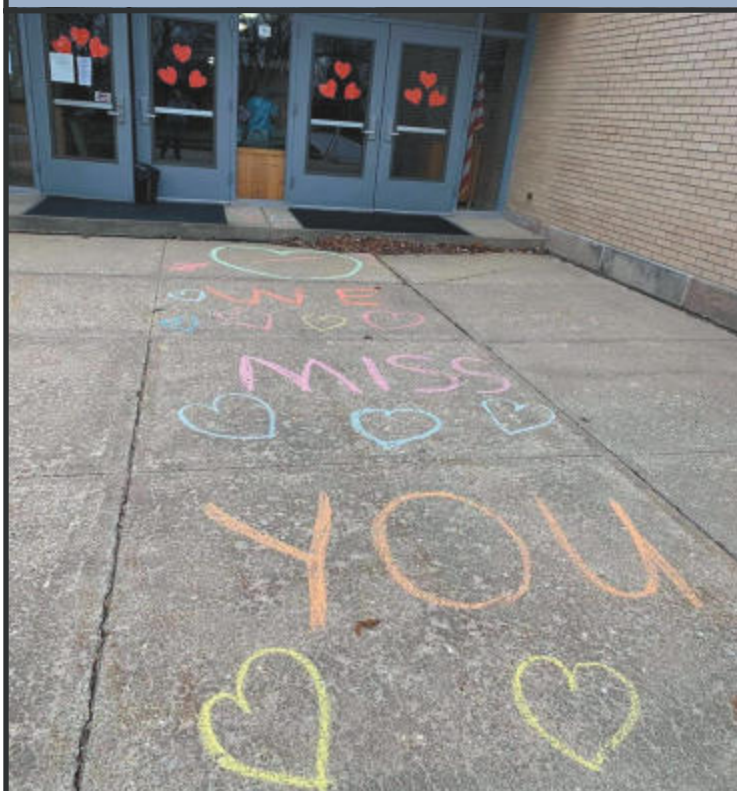 WE
MISS
YOU